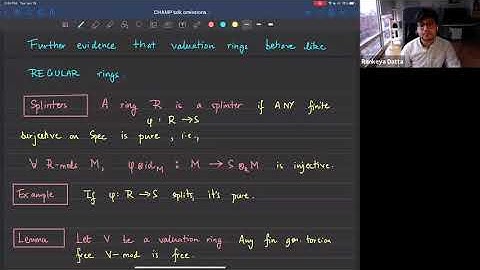 CHAMP talk omissions
Rankeya Datta
Further evidence that valuation rings behave like
REGULAR rings.
Splinters A ring R is a splinter if ANY finite
φ : R → S
surjective on Spec is pure, i.e.,
∀ R-mods M, φ⊗id_M : M → S ⊗_R M is injective.
Example If φ: R → S splits, it's pure.
Lemma Let V be a valuation ring. Any fin gen. torsion
free V-mod is free.